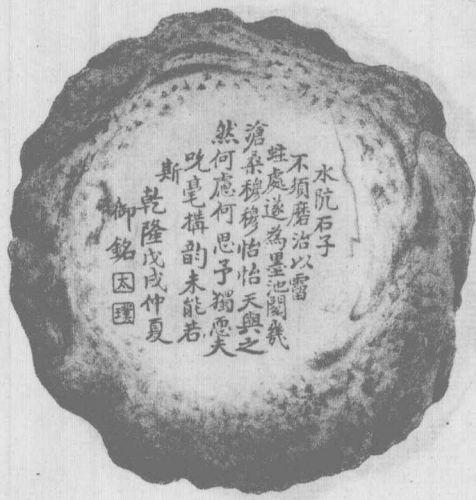 水阬石子
不須磨治以霤
蛀處遂為墨池閱幾
滄桑穆穆怡怡天與之
然何慮何思予獨恧夫
吮毫搆韵未能若
斯
乾隆戊戌仲夏
御銘
太
璞